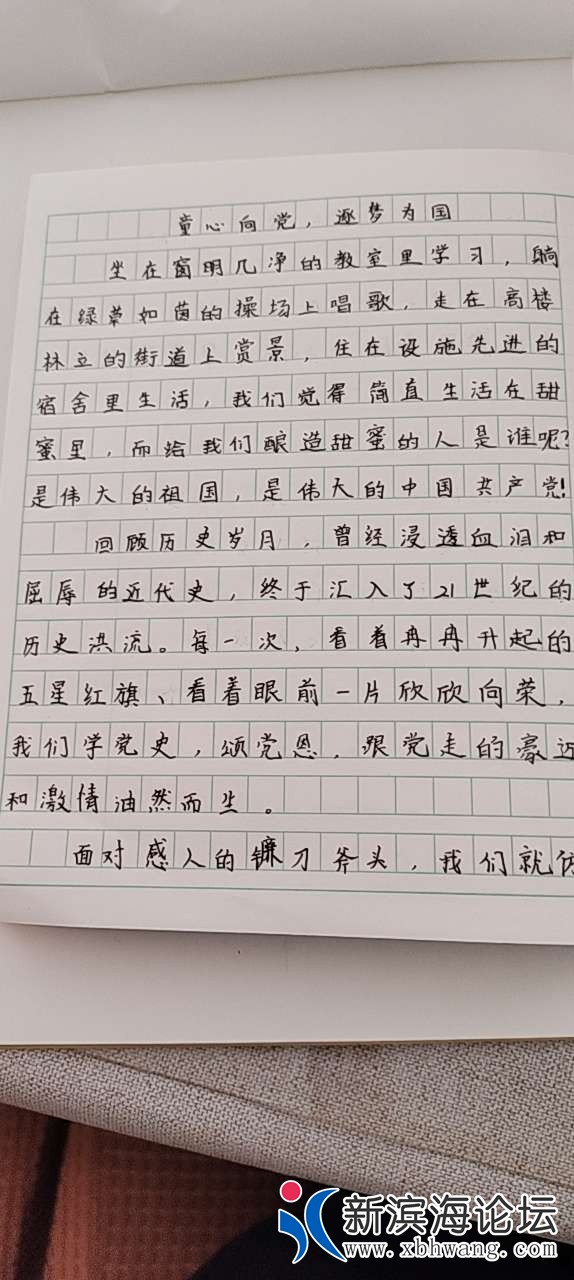 童心向党，逐梦为国
坐在窗明几净的教室里学习，躺
在绿草如茵的操场上唱歌，走在高楼
林立的街道上赏景，住在设施先进的
宿舍里生活，我们觉得简直生活在甜
蜜里，而给我们酿造甜蜜的人是谁呢？
是伟大的祖国，是伟大的中国共产党！
回顾历史岁月，曾经浸透血泪和
屈辱的近代史，终于汇入了21世纪的
历史洪流。每一次，看着冉冉升起的
五星红旗、看着眼前一片欣欣向荣，
我们学党史，颂党恩，跟党走的豪迈
和激情油然而生。
面对感人的镰刀斧头，我们就仿
新滨海论坛
www.xbhwang.com